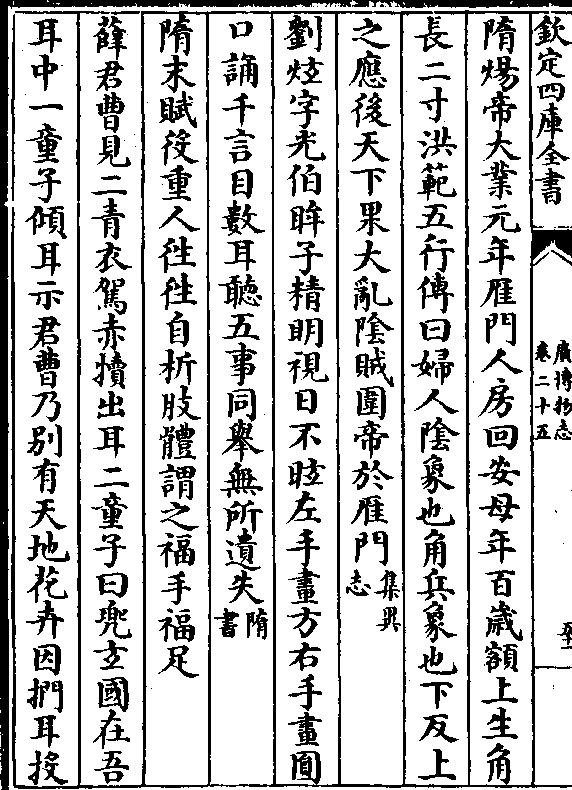 欽定四庫全書
廣博物志
卷二十五
隋煬帝大業元年雁門人房回安母年百歲額上生角
長二寸洪範五行傳曰婦人陰象也角兵象也下反上
之應後天下果大亂陰賊圍帝於雁門集異志
劉炫字光伯眸子精明視日不眩左手畫方右手畫圓
口誦千言目數耳聽五事同舉無所遺失隋書
隋末賦役重人徃徃自折肢體謂之福手福足
薛君曹見二青衣駕赤犢出耳二童子曰兜玄國在吾
耳中一童子傾耳示君曹乃别有天地花卉因捫耳投